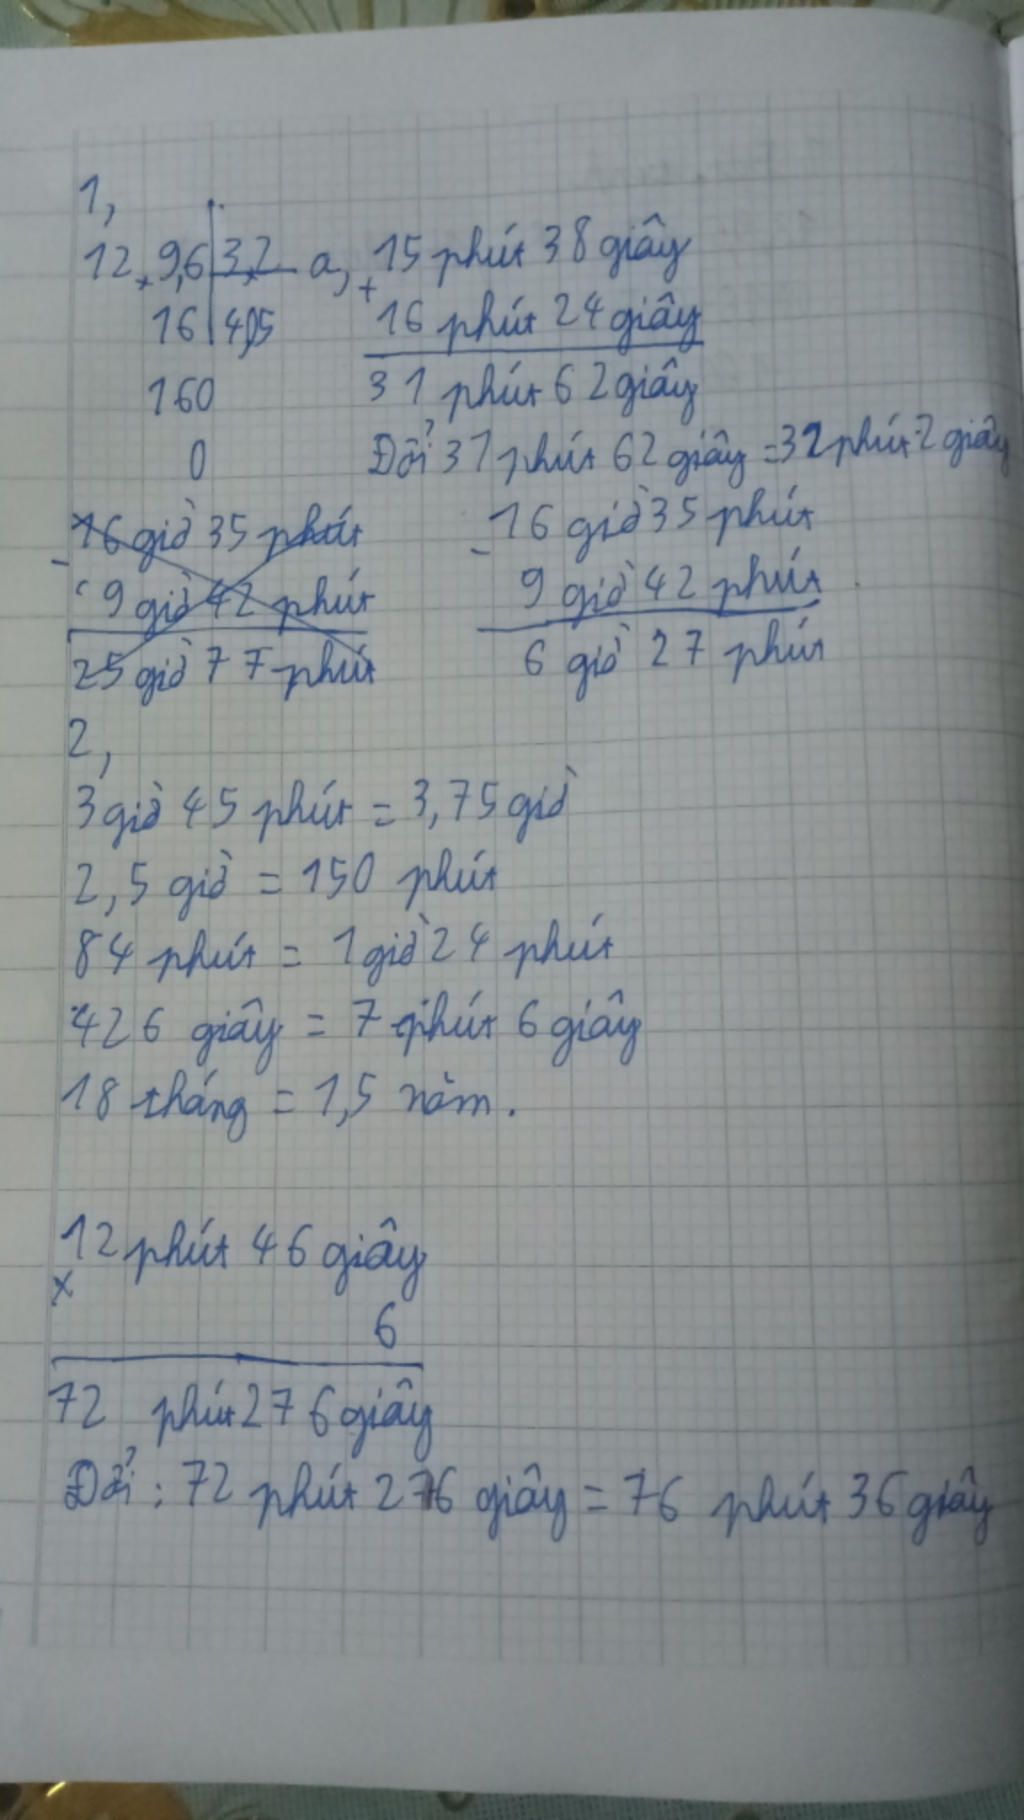 1,
12,9,6 3,2 a, 15 phút 38 giây
16 4,05 + 16 phút 24 giây
160 31 phút 62 giây
0 Đổi 31 phút 62 giây = 32 phút 2 giây
16 giờ 35 phút - 16 giờ 35 phút
- 9 giờ 42 phút 9 giờ 42 phút
25 giờ 77 phút 6 giờ 27 phút
2,
3 giờ 45 phút = 3,75 giờ
2,5 giờ = 150 phút
84 phút = 1 giờ 24 phút
426 giây = 7 phút 6 giây
18 tháng = 1,5 năm.
12 phút 46 giây
x
6
72 phút 276 giây
Đổi : 72 phút 276 giây = 76 phút 36 giây